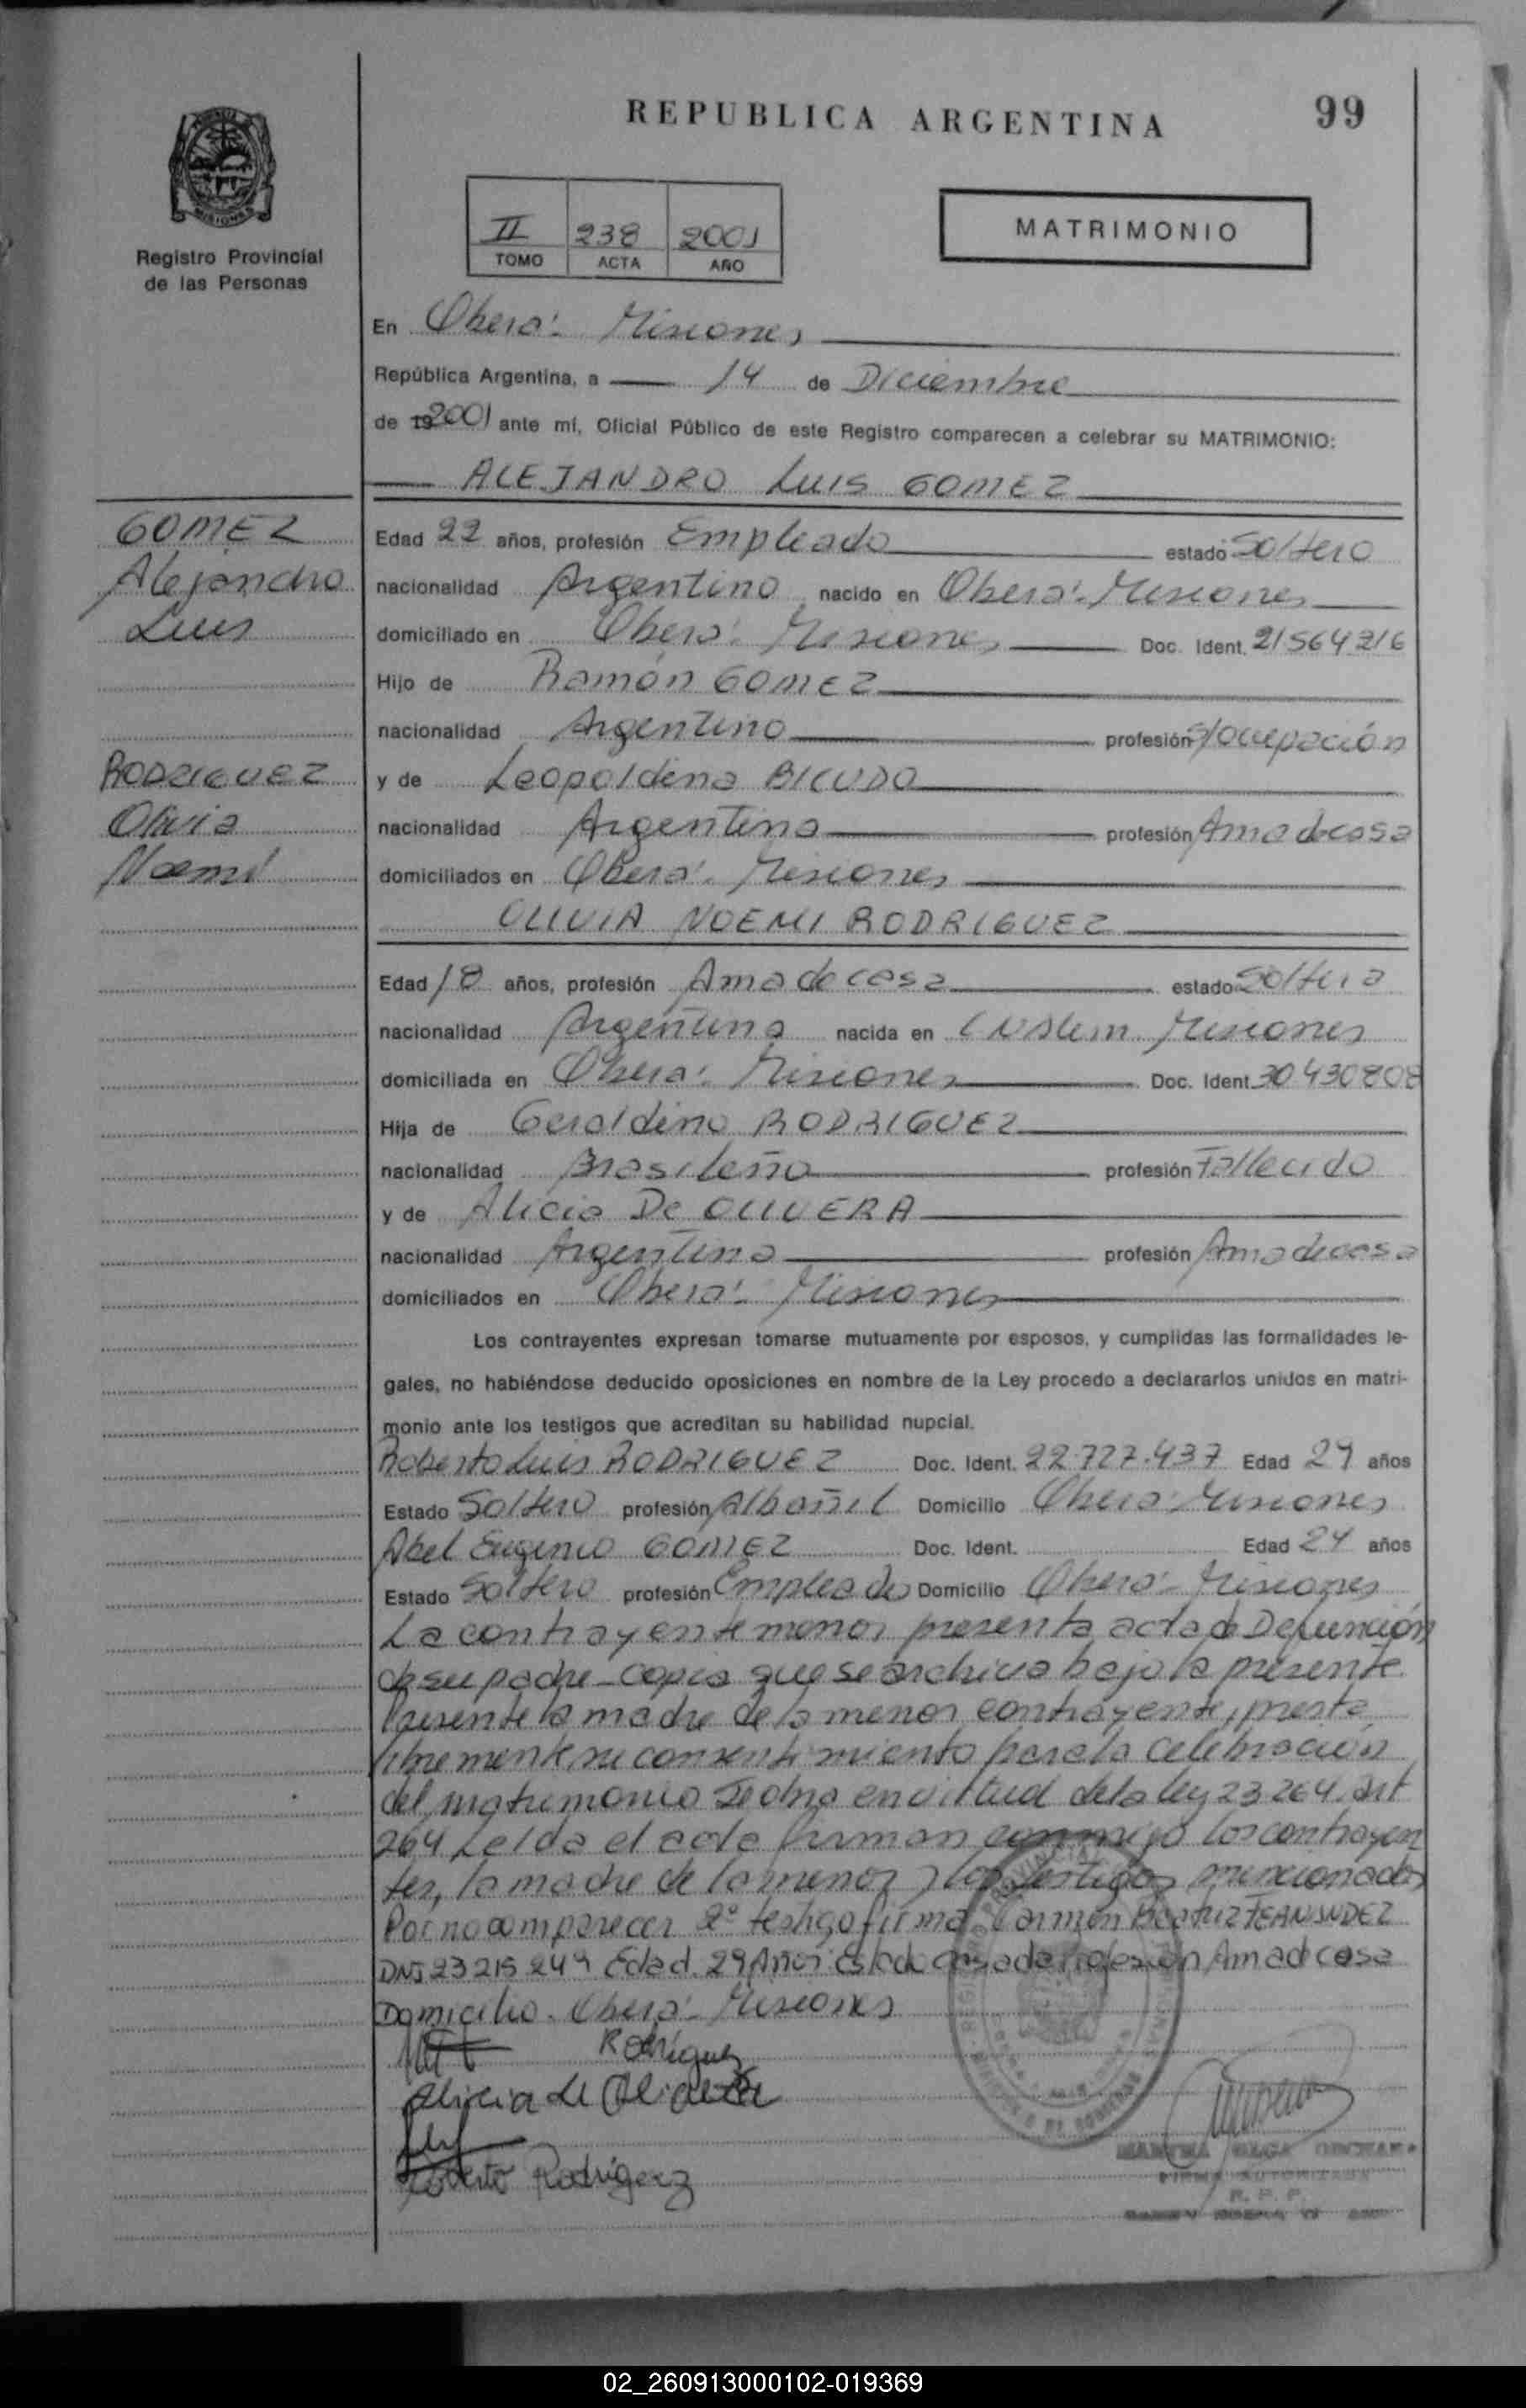 REPUBLICA ARGENTINA
99
MISIONES
Registro Provincial
de las Personas
II 238 2001
TOMO ACTA AÑO
MATRIMONIO
En Oberá - Misiones
República Argentina, a 14 de Diciembre
de 19 2001 ante mí, Oficial Público de este Registro comparecen a celebrar su MATRIMONIO:
ALEJANDRO LUIS GOMEZ
GOMEZ
Alejandro
Luis
RODRIGUEZ
Olivia
Noemí
Edad 22 años, profesión Empleado estado Soltero
nacionalidad Argentino nacido en Oberá - Misiones
domiciliado en Oberá - Misiones Doc. Ident. 21564216
Hijo de Ramón GOMEZ
nacionalidad Argentino profesión s/ocupación
y de Leopoldina BICUDO
nacionalidad Argentina profesión Ama de casa
domiciliados en Oberá - Misiones
OLIVIA NOEMI RODRIGUEZ
Edad 18 años, profesión Ama de casa estado Soltera
nacionalidad Argentina nacida en LNAlem Misiones
domiciliada en Oberá - Misiones Doc. Ident. 30430808
Hija de Geraldino RODRIGUEZ
nacionalidad Brasileño profesión Fallecido
y de Alicia De OLIVERA
nacionalidad Argentina profesión Ama de casa
domiciliados en Oberá - Misiones
Los contrayentes expresan tomarse mutuamente por esposos, y cumplidas las formalidades le-
gales, no habiéndose deducido oposiciones en nombre de la Ley procedo a declararlos unidos en matri-
monio ante los testigos que acreditan su habilidad nupcial.
Roberto Luis RODRIGUEZ Doc. Ident. 22.727.437 Edad 29 años
Estado Soltero profesión Albañil Domicilio Oberá - Misiones
Abel Eugenio GOMEZ Doc. Ident. Edad 24 años
Estado Soltero profesión Empleado Domicilio Oberá - Misiones
La contrayente menor presenta acta de Defunción
de su padre - copia que se archiva bajo la presente
Presente la madre de la menor contrayente, presta
libremente su consentimiento para la celebración
del matrimonio Se obra en virtud de la ley 23264 Art
264 Leída el acta firman conmigo los contrayen
tes, la madre de la menor y los testigos mencionados
Por no comparecer 2º testigo firma Carmen Beatriz FERNANDEZ
DNI 23215249 Edad 29 Años Estado casada Profesión Ama de casa
Domicilio - Oberá - Misiones
Rodriguez
Alicia de Olivera
Roberto Rodriguez
MARTHA OLGA
FIRMA AUTORIZADA
R. P. P.
02_260913000102-019369